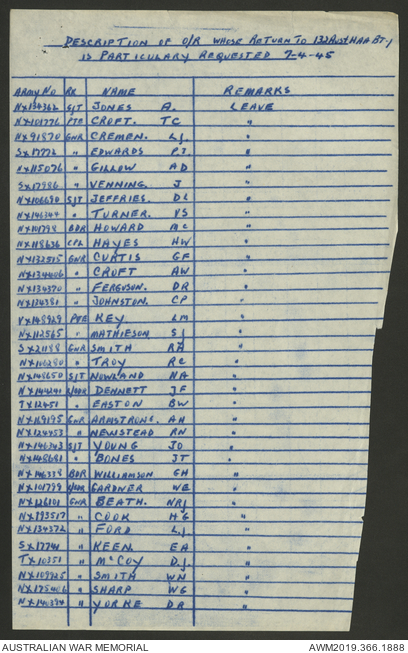 DESCRIPTION OF O/R WHOSE RETURN TO 132 AUST HAA BTY
IS PARTICULARY REQUESTED 7-4-45
ARMY NO RK NAME REMARKS
NX134362 SJT JONES A. LEAVE
NX101776 PTE CROFT. TC "
NX91870 GNR CREMEN. L.J. "
SX17772 " EDWARDS P.J. "
NX115076 " GILLOW AD "
SX17986 " VENNING. J "
NX106690 SJT JEFFRIES. DL "
NX146344 " TURNER. VS "
NX101798 BDR HOWARD MC "
NX118636 CPL HAYES HW "
NX132515 GNR CURTIS GF "
NX134406 " CROFT AW "
NX134370 " FERGUSON. DR "
NX124381 " JOHNSTON. CP "
VX148929 PTE KEY LM "
NX112565 " MATHIESON S.L "
SX21188 GNR SMITH RA "
NX106280 " TROY RC "
NX148650 SJT NOWLAND NA "
NX144241 L/BDR DENNETT JF "
TX12451 " EASTON BW "
NX169195 GNR ARMSTRONG. AH "
NX124453 " NEWSTEAD RN "
NX146343 SJT YOUNG JO "
NX148681 " BONES JT "
NX146338 BDR WILLIAMSON GH "
NX101799 L/BDR GARDNER WE "
NX126101 GNR BEATH. NRJ "
NX193517 " COOK HG "
NX134372 " FORD L.J. "
SX17741 " KEEN. EA "
TX10351 " McCOY D.J. "
NX109925 " SMITH WN "
NX175406 " SHARP WG "
NX140394 " YORKE DR "
AUSTRALIAN WAR MEMORIAL AWM2019.366.1888